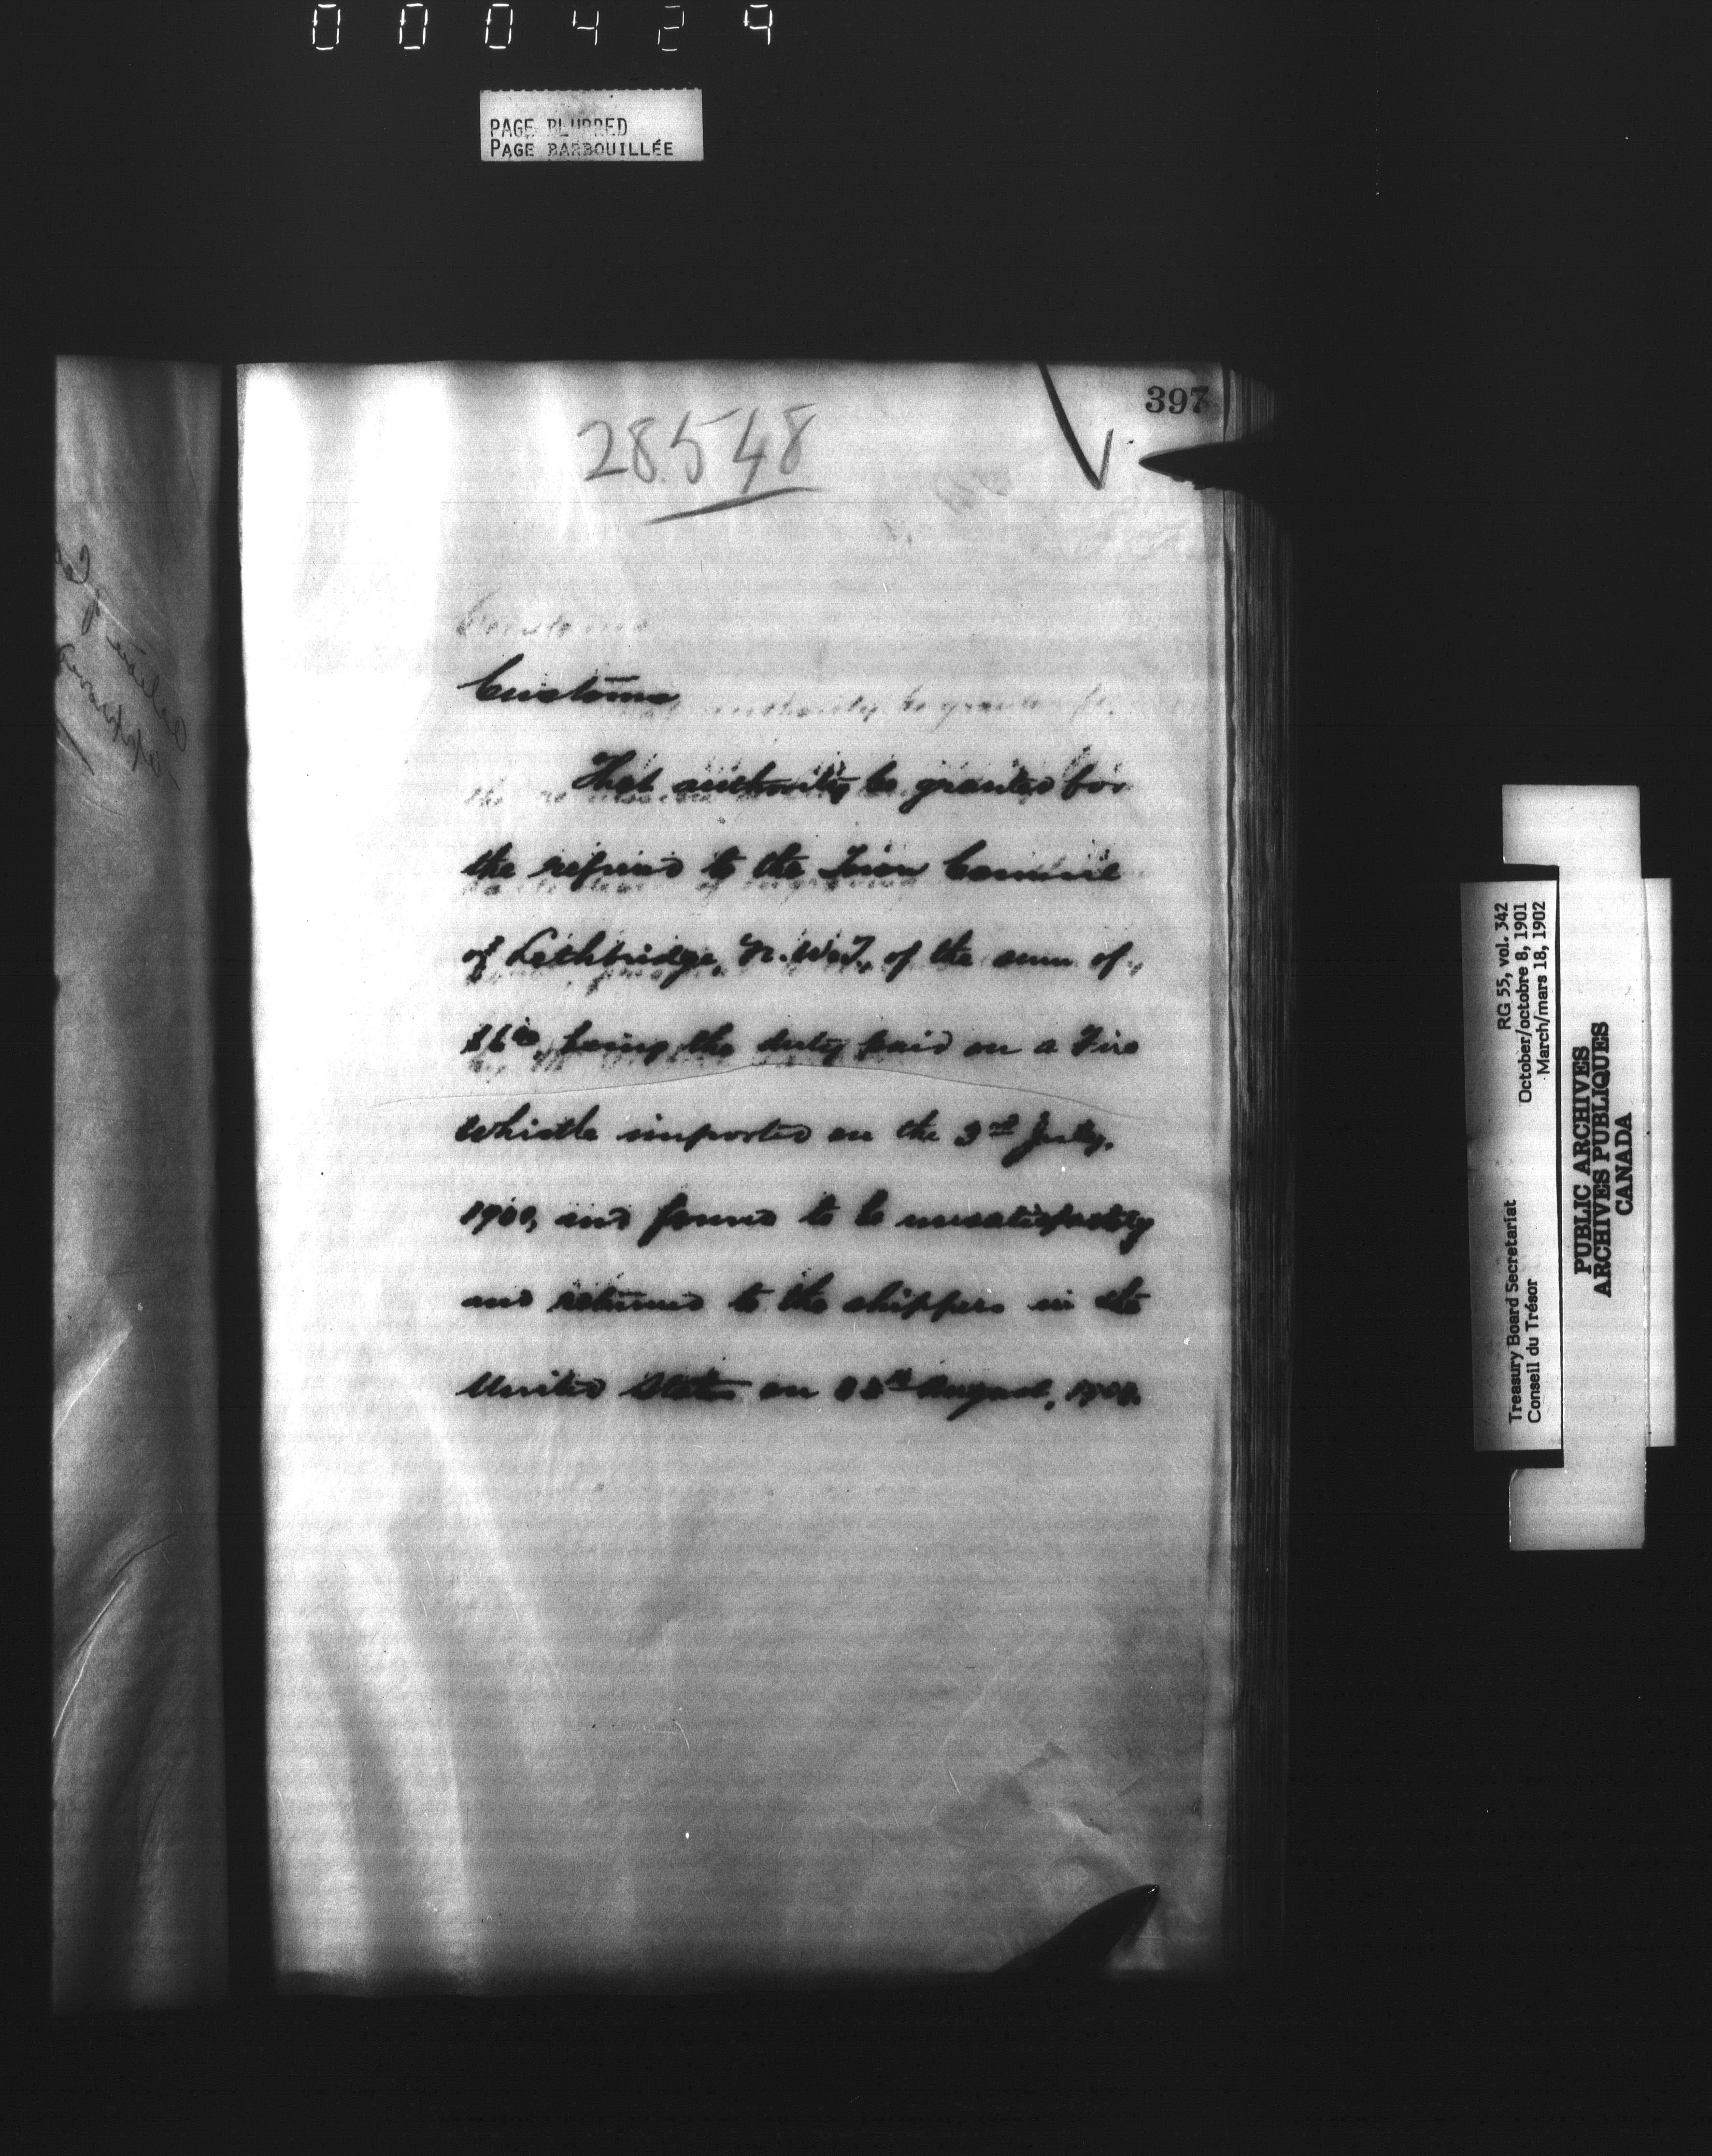 000429
PAGE BLURRED
PAGE BARBOUILLÉE
397
28548
Customs
Customs
authority be granted fo
That authority be granted for
the refund to the Town Council
of Lethbridge, N.W.T., of the sum of
being the duty paid on a Fire
Whistle imported on the 3rd July,
1900, and found to be unsatisfactory
and returned to the shippers in the
United States on August, 1900.
RG 55, vol. 342
October/octobre 8, 1901
March/mars 18, 1902
Treasury Board Secretariat
Conseil du Trésor
PUBLIC ARCHIVES
ARCHIVES PUBLIQUES
CANADA